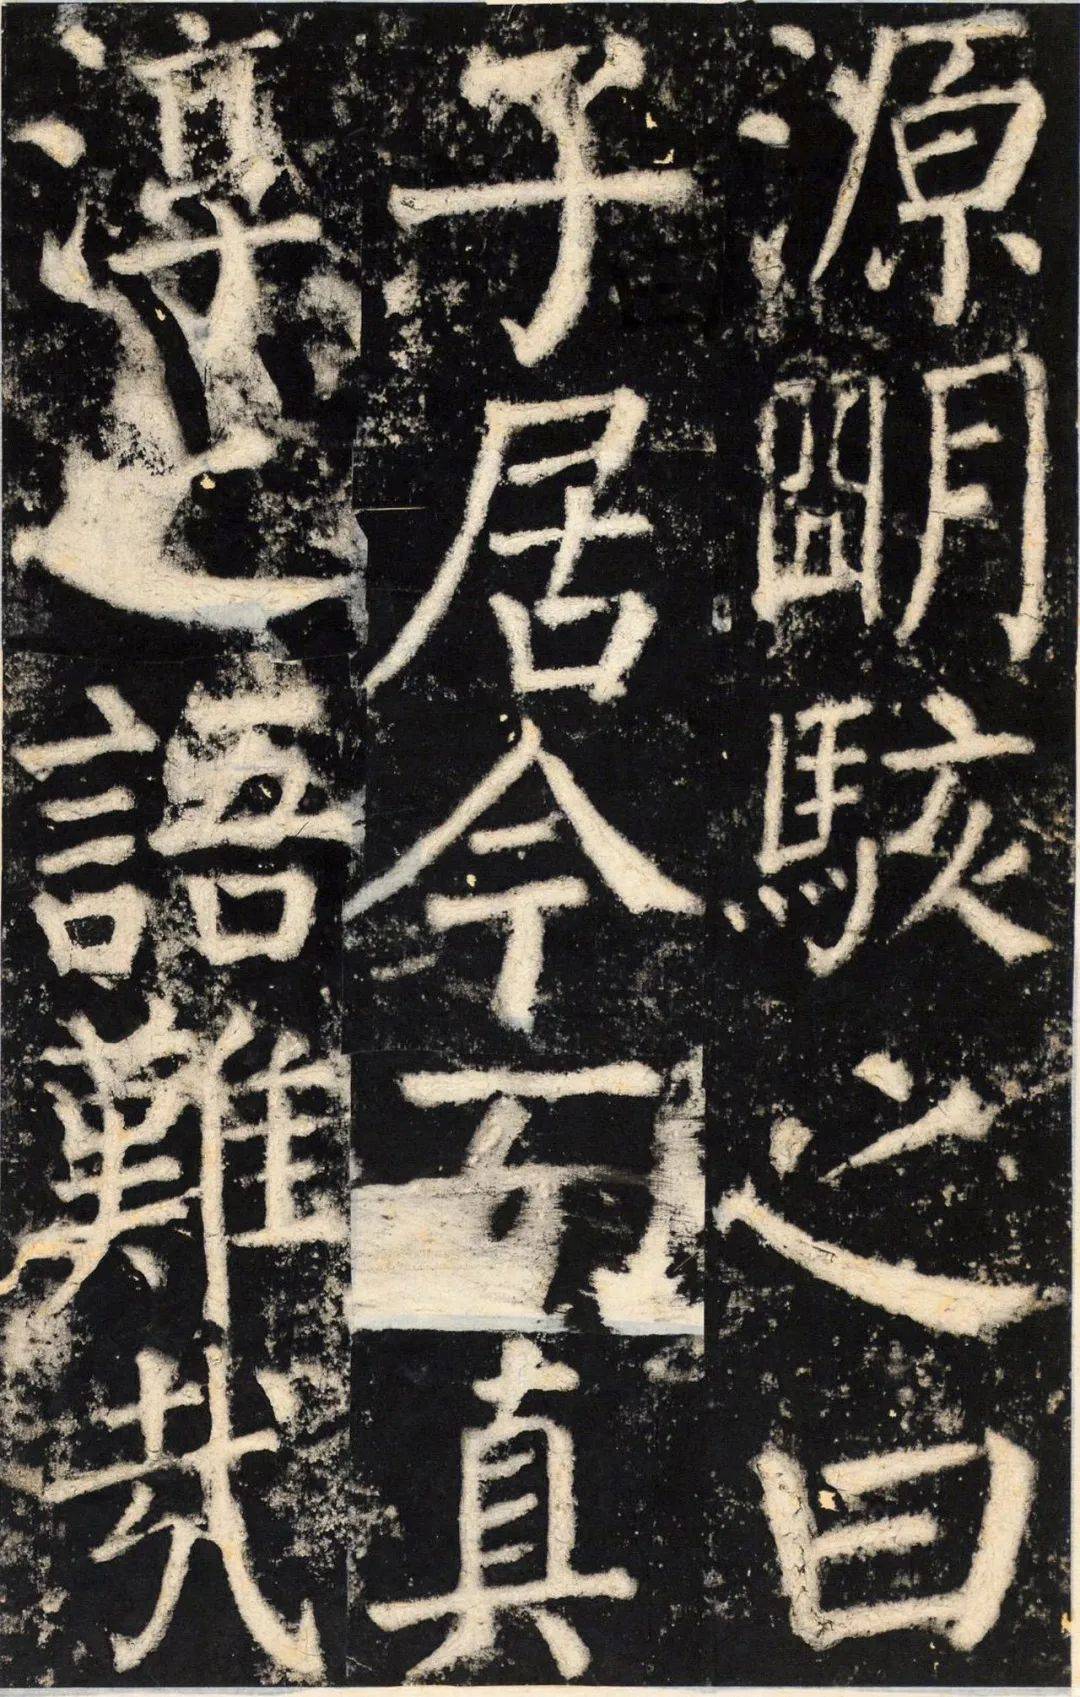 源朙駭之曰
子居今而真
淳之語難哉